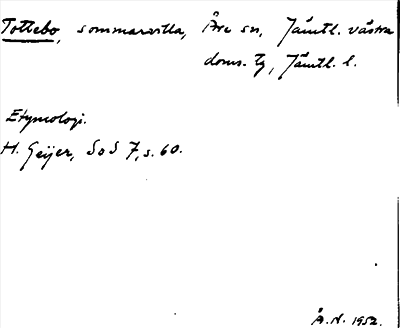 Tottebo, sommarvilla, Åre sn, Jämtl. västra
doms. tg, Jämtl. l.
Etymologi.
H. Geijer, SoS 7, s. 60.
Å. N. 1952.